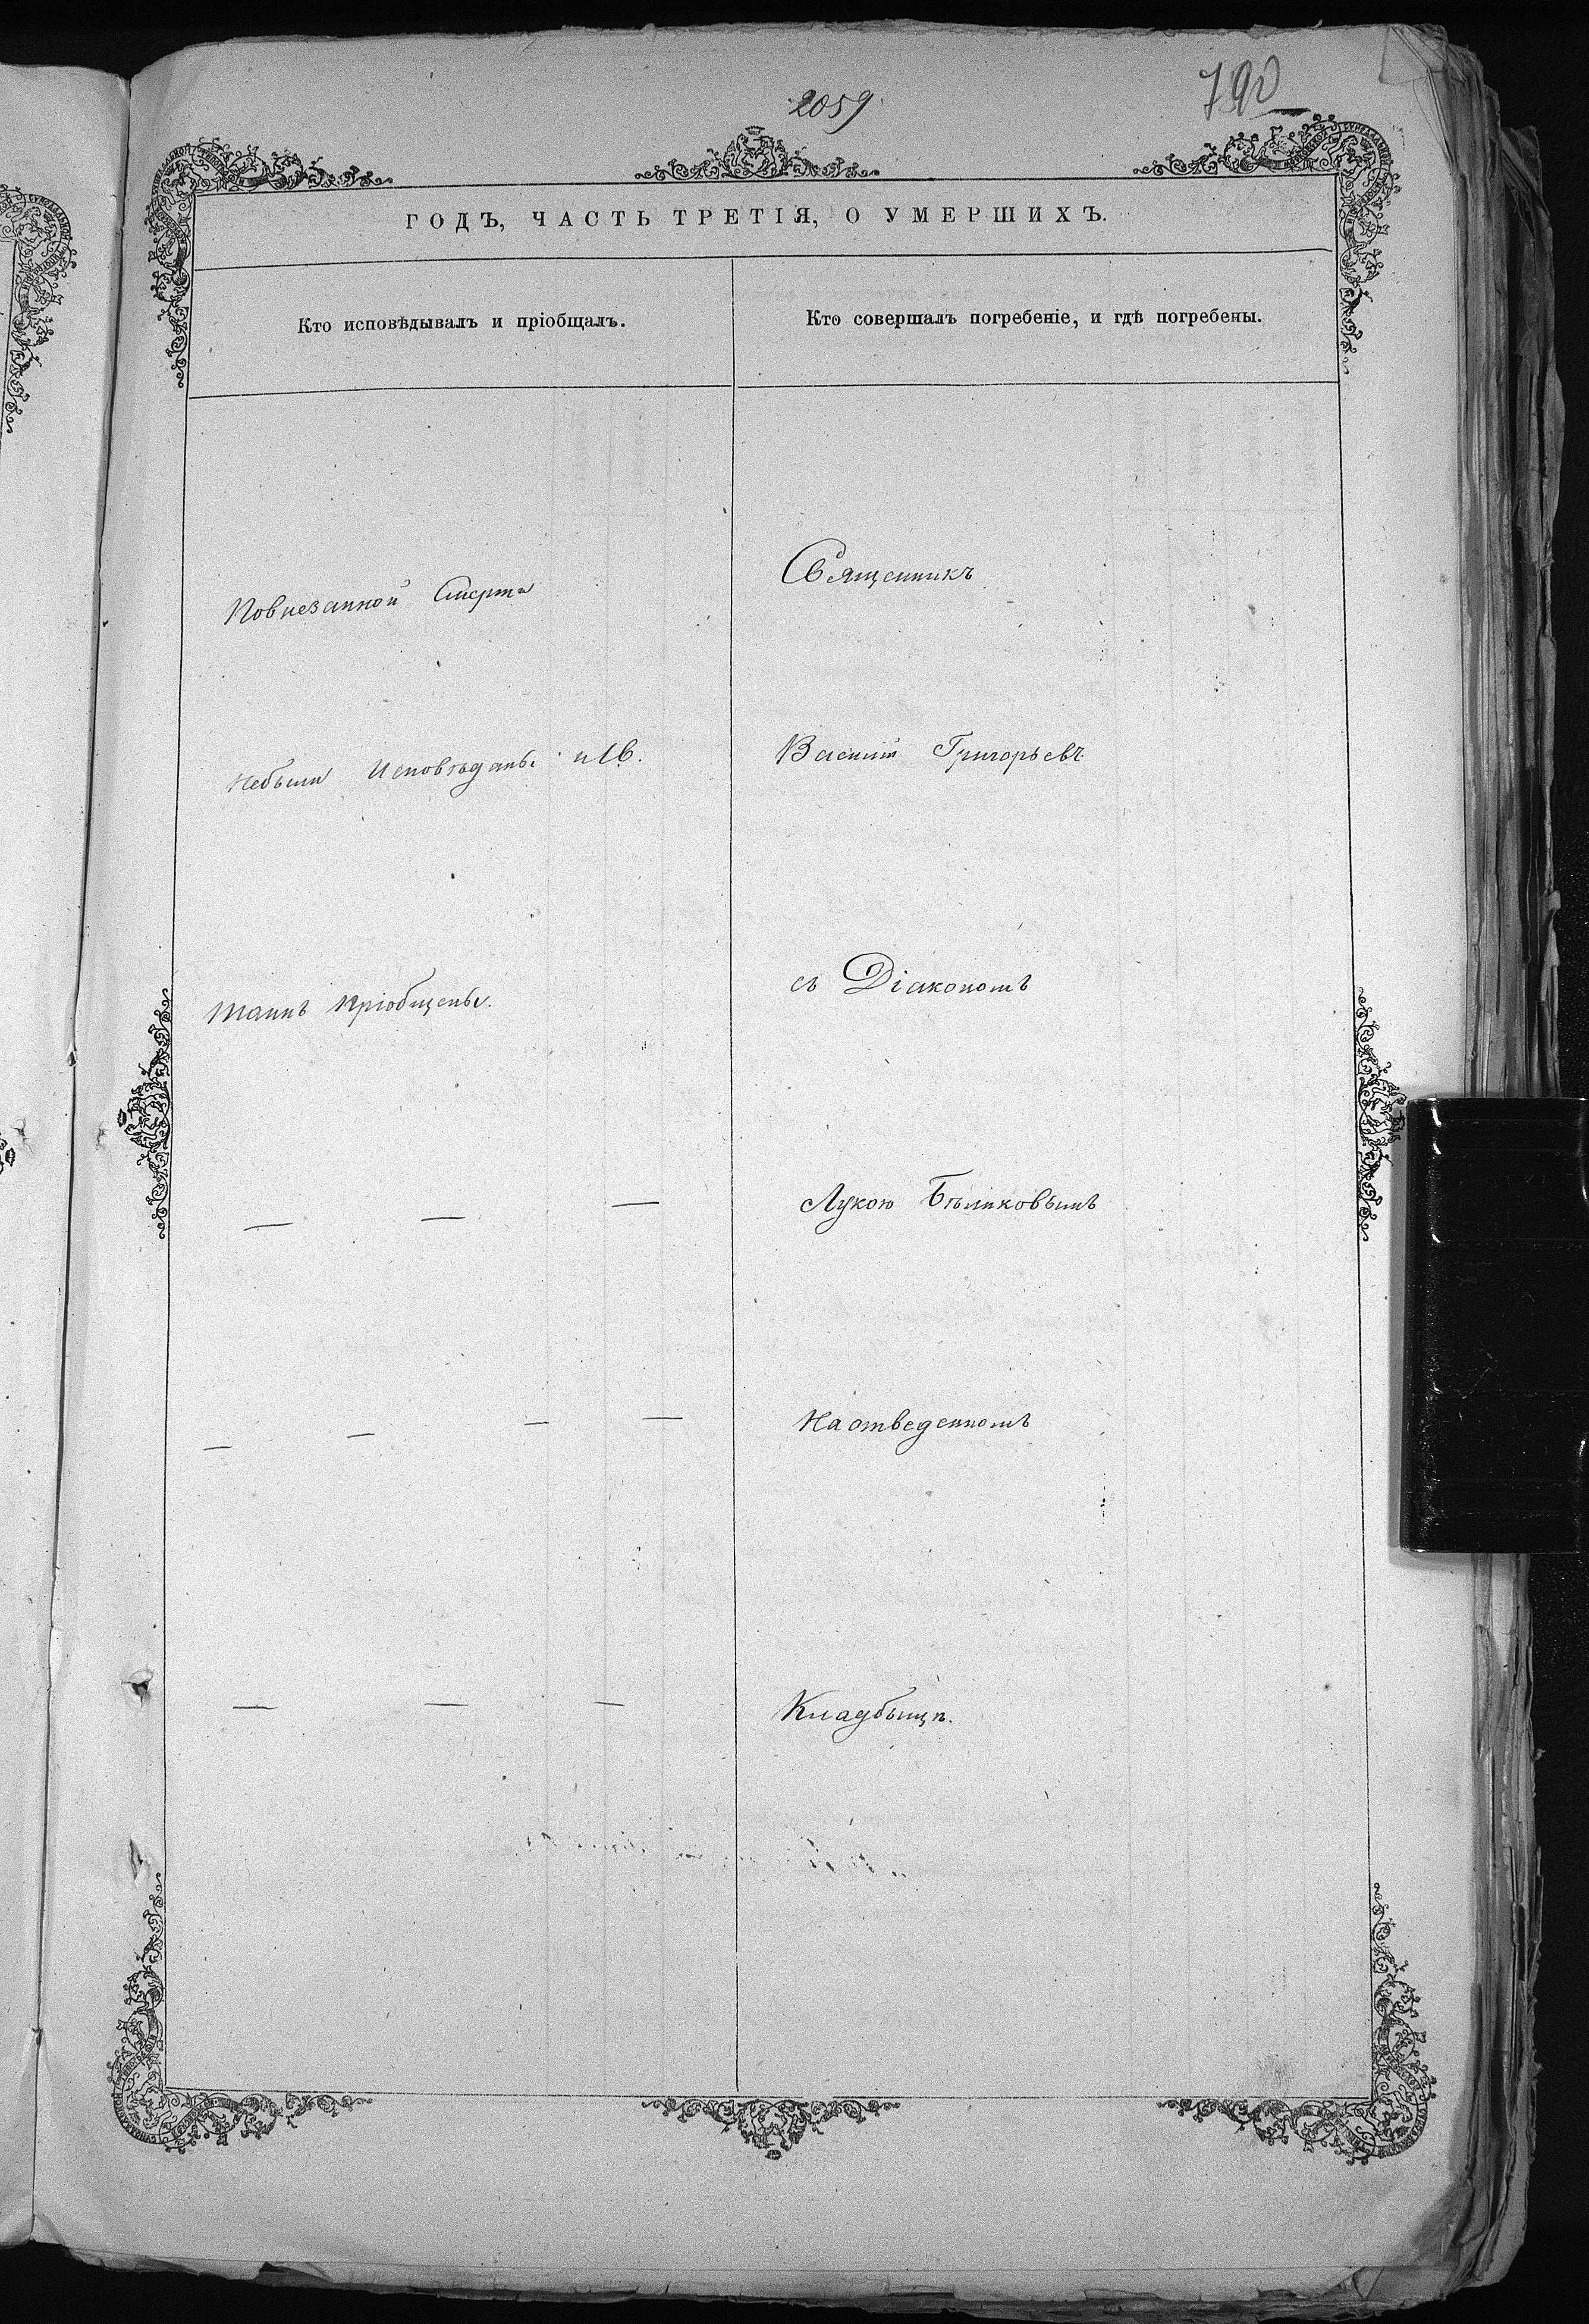 2059
790
ГОДЪ, ЧАСТЬ ТРЕТІЯ, О УМЕРШИХЪ.
Кто исповѣдывалъ и пріобщалъ.
Кто совершалъ погребеніе, и гдѣ погребены.
Повнезапной Смерти
Небыли Исповѣданы и Св.
Таинъ пріобщены.
— — —
— — — —
— — —
Священникъ
Василій Григорьевъ
съ Діакономъ
Лукою Бѣликовымъ
На отведенномъ
Кладбыщѣ.